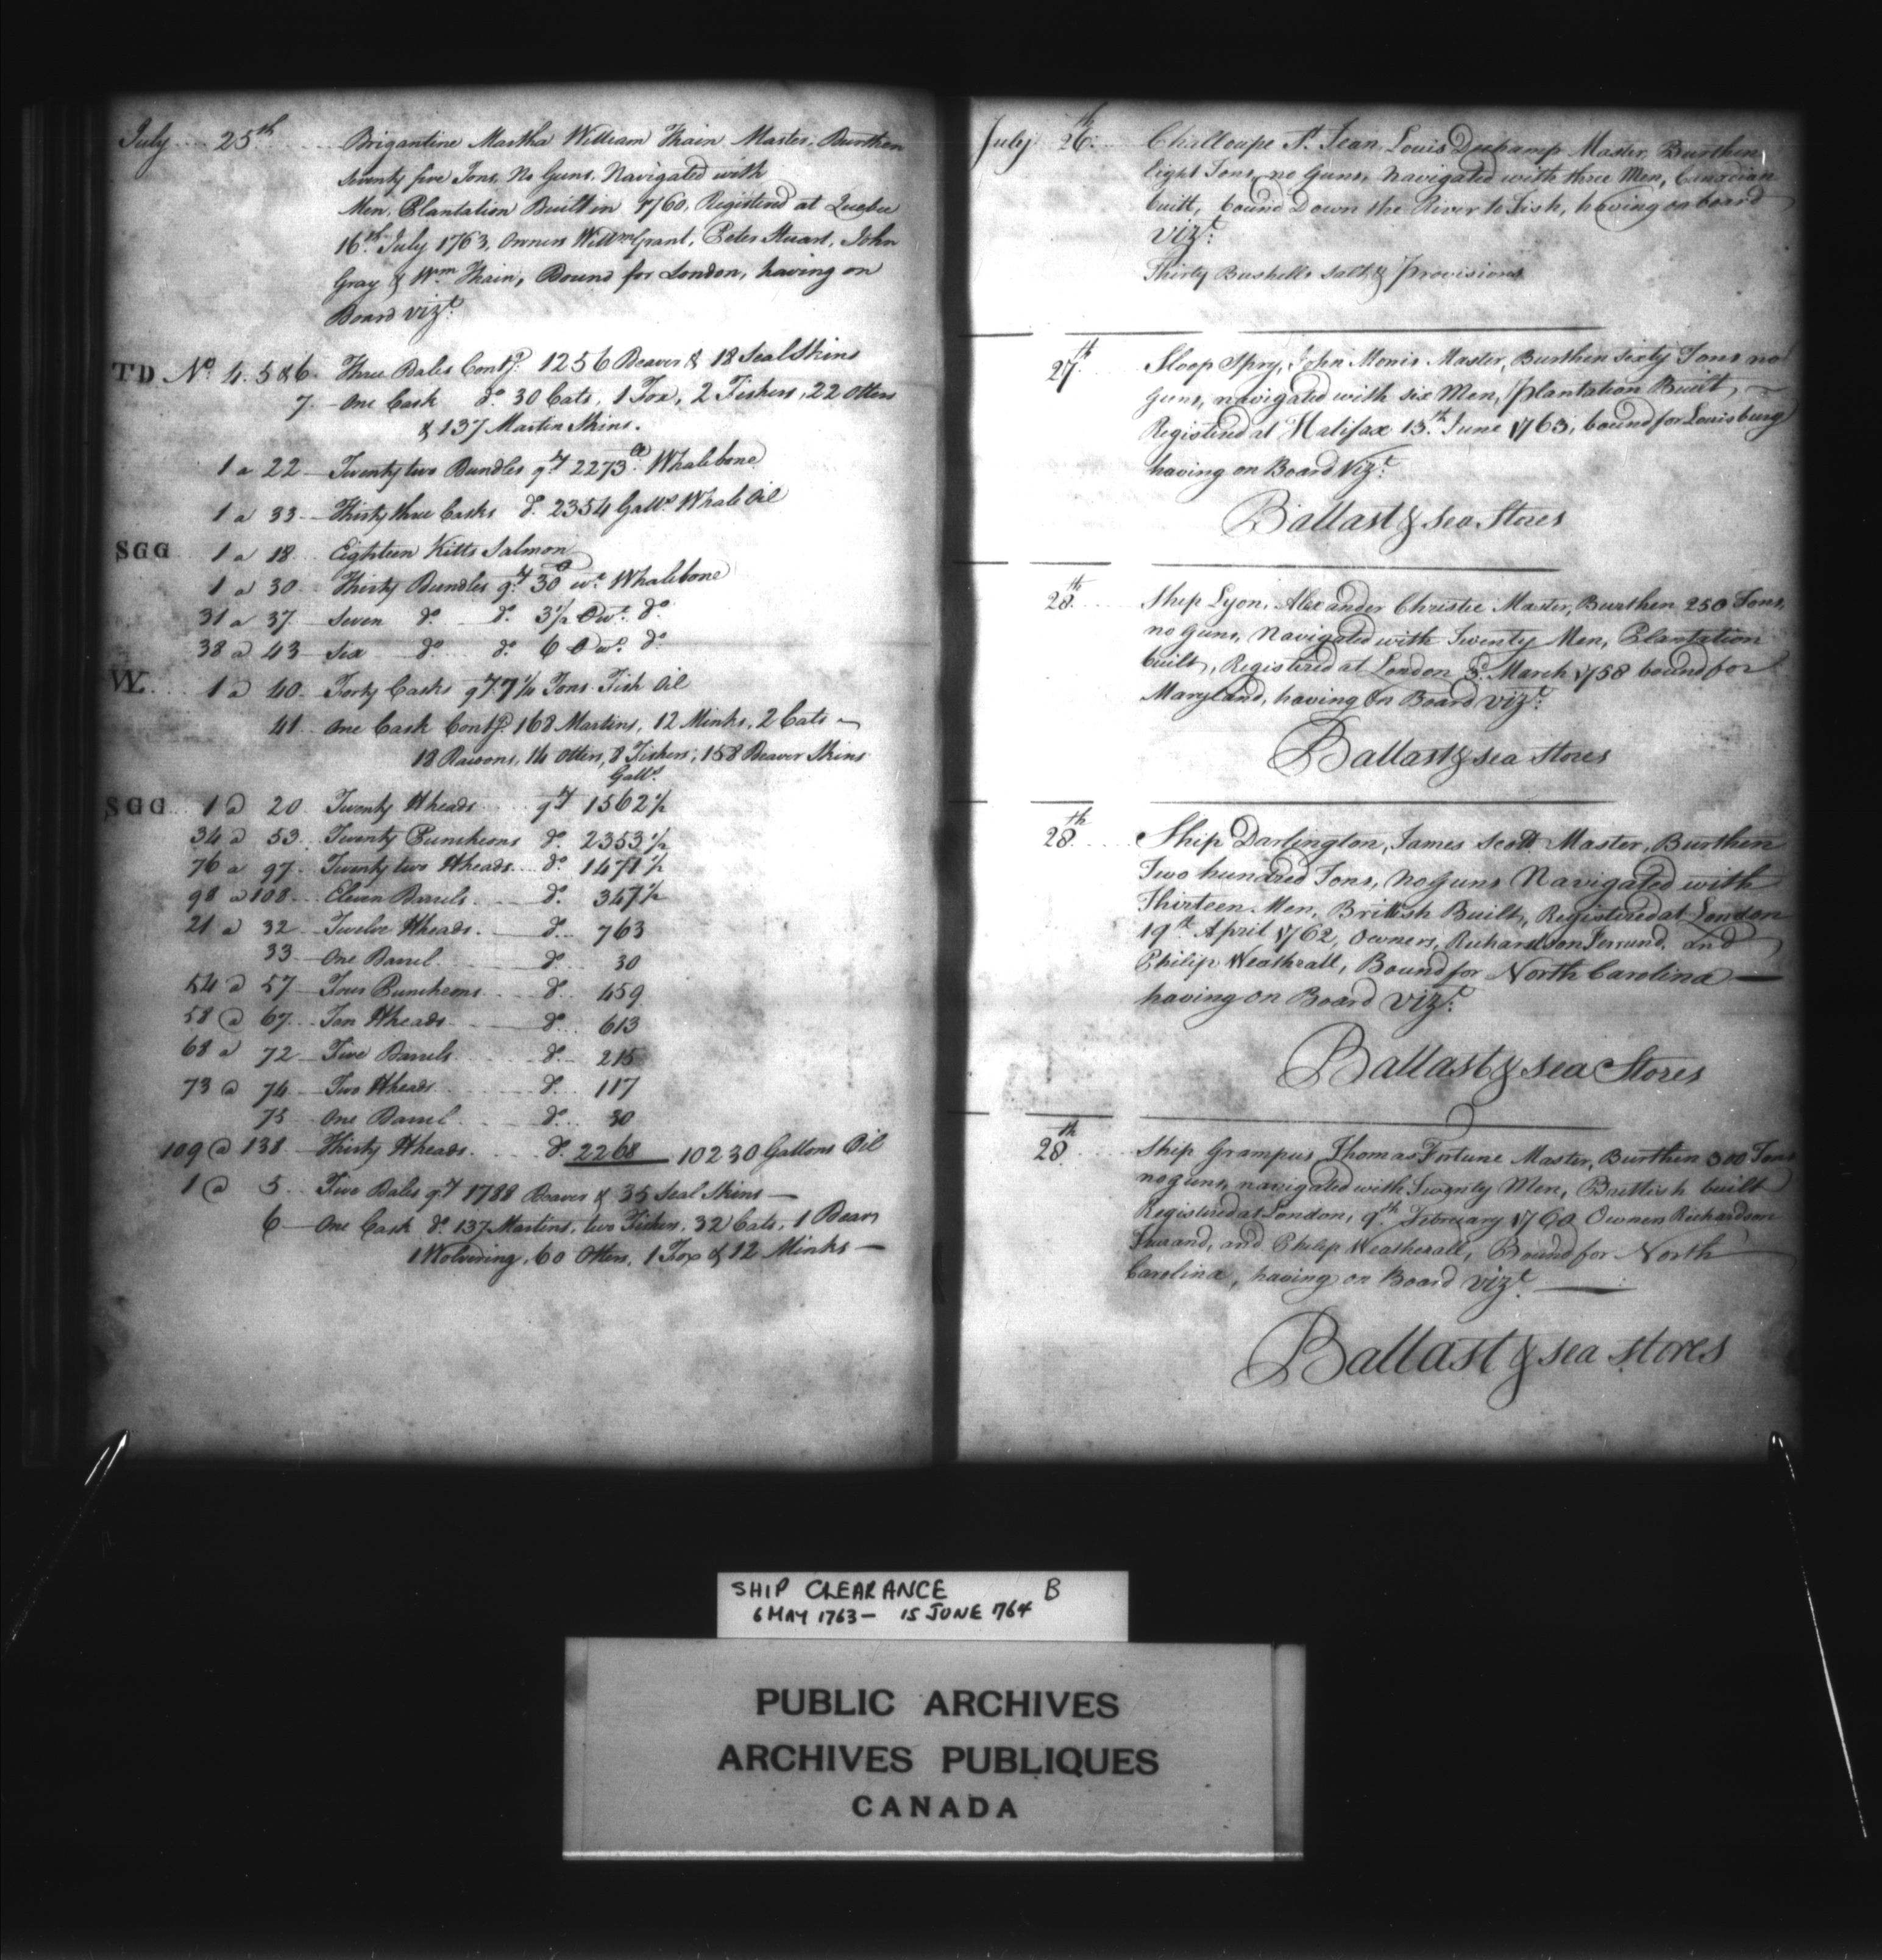 July 25th Brigantine Martha William Thain Master, Burthen
seventy five Tons, No Guns, Navigated with
Men, Plantation Built in 1760, Registered at Quebec
16th July 1763, Owners Willm Grant, Peter Stuart, John
Gray & Wm Thain, Bound for London, having on
Board vizt.
TD No. 4. 5 & 6. Three Bales Contg. 1256 Beaver & 18 Seal Skins
7. One Cask do. 30 Cats, 1 Fox, 2 Fishers, 22 Otters
& 137 Martin Skins.
1 a 22 Twenty two Bundles qt. 2273 lb Whalebone
1 a 33 Thirty three Casks do. 2354 Galls. Whale Oil
SGG 1 a 18 Eighteen Kitts Salmon
1 a 30 Thirty Bundles qt. 30 Cwt. Whalebone
31 a 37 Seven do. do. 3½ Cwt. do.
38 a 43 Six do. do. 6 Cwt. do.
W. 1 a 40 Forty Casks qt. 7¼ Tons Fish Oil
41 One Cask Contg. 168 Martins, 12 Minks, 2 Cats
18 Racoons, 14 Otters, 8 Fishers, 158 Beaver Skins
Galls.
SGG 1 a 20 Twenty Hheads qt. 1562½
34 a 53 Twenty Puncheons do. 2353½
76 a 97 Twenty two Hheads do. 1471½
98 a 108 Eleven Barrels do. 347½
21 a 32 Twelve Hheads do. 763
33 One Barrel do. 30
54 a 57 Four Puncheons do. 459
58 @ 67 Ten Hheads do. 613
68 a 72 Five Barrels do. 215
73 @ 74 Two Hheads do. 117
75 One Barrel do. 30
109 @ 138 Thirty Hheads do. 2268 10230 Gallons Oil
1 @ 5 Five Bales qt. 1788 Beaver & 35 Seal Skins
6 One Cask do. 137 Martins, two Fishers, 32 Cats, 1 Bear
1 Wolvering, 60 Otters, 1 Fox & 12 Minks
July 26th Challoupe St. Jean, Louis Duchamp Master, Burthen
Eight Tons, no Guns, navigated with three Men, Canadian
built, bound Down the River to Fish, having on board
Vizt.
Thirty Bushells Salt & Provisions
27th Sloop Spry, John Monis Master, Burthen sixty Tons no
Guns, navigated with six Men, Plantation Built,
Registered at Halifax 13th June 1763, bound for Louisburg
having on Board Vizt.
Ballast & Sea Stores
28th Ship Lyon, Alexander Christie Master, Burthen 250 Tons,
no Guns, Navigated with Twenty Men, Plantation
built, Registered at London March 1758 bound for
Maryland, having on Board Vizt.
Ballast & Sea Stores
28th Ship Darlington, James Scott Master, Burthen
Two hundred Tons, no Guns Navigated with
Thirteen Men, British Built, Registered at London
19th April 1762, Owners, Richardson and
Philip Weatherall, Bound for North Carolina
having on Board Vizt.
Ballast & Sea Stores
28th Ship Grampus Thomas Fortune Master, Burthen 300 Tons
no guns, navigated with Twenty Men, Brittish built
Registered at London, 9th February 1760 Owners Richardson
and Philip Weatherall, Bound for North
Carolina, having on Board Vizt.
Ballast & Sea Stores
SHIP CLEARANCE B
6 MAY 1763 - 15 JUNE 764
PUBLIC ARCHIVES
ARCHIVES PUBLIQUES
CANADA